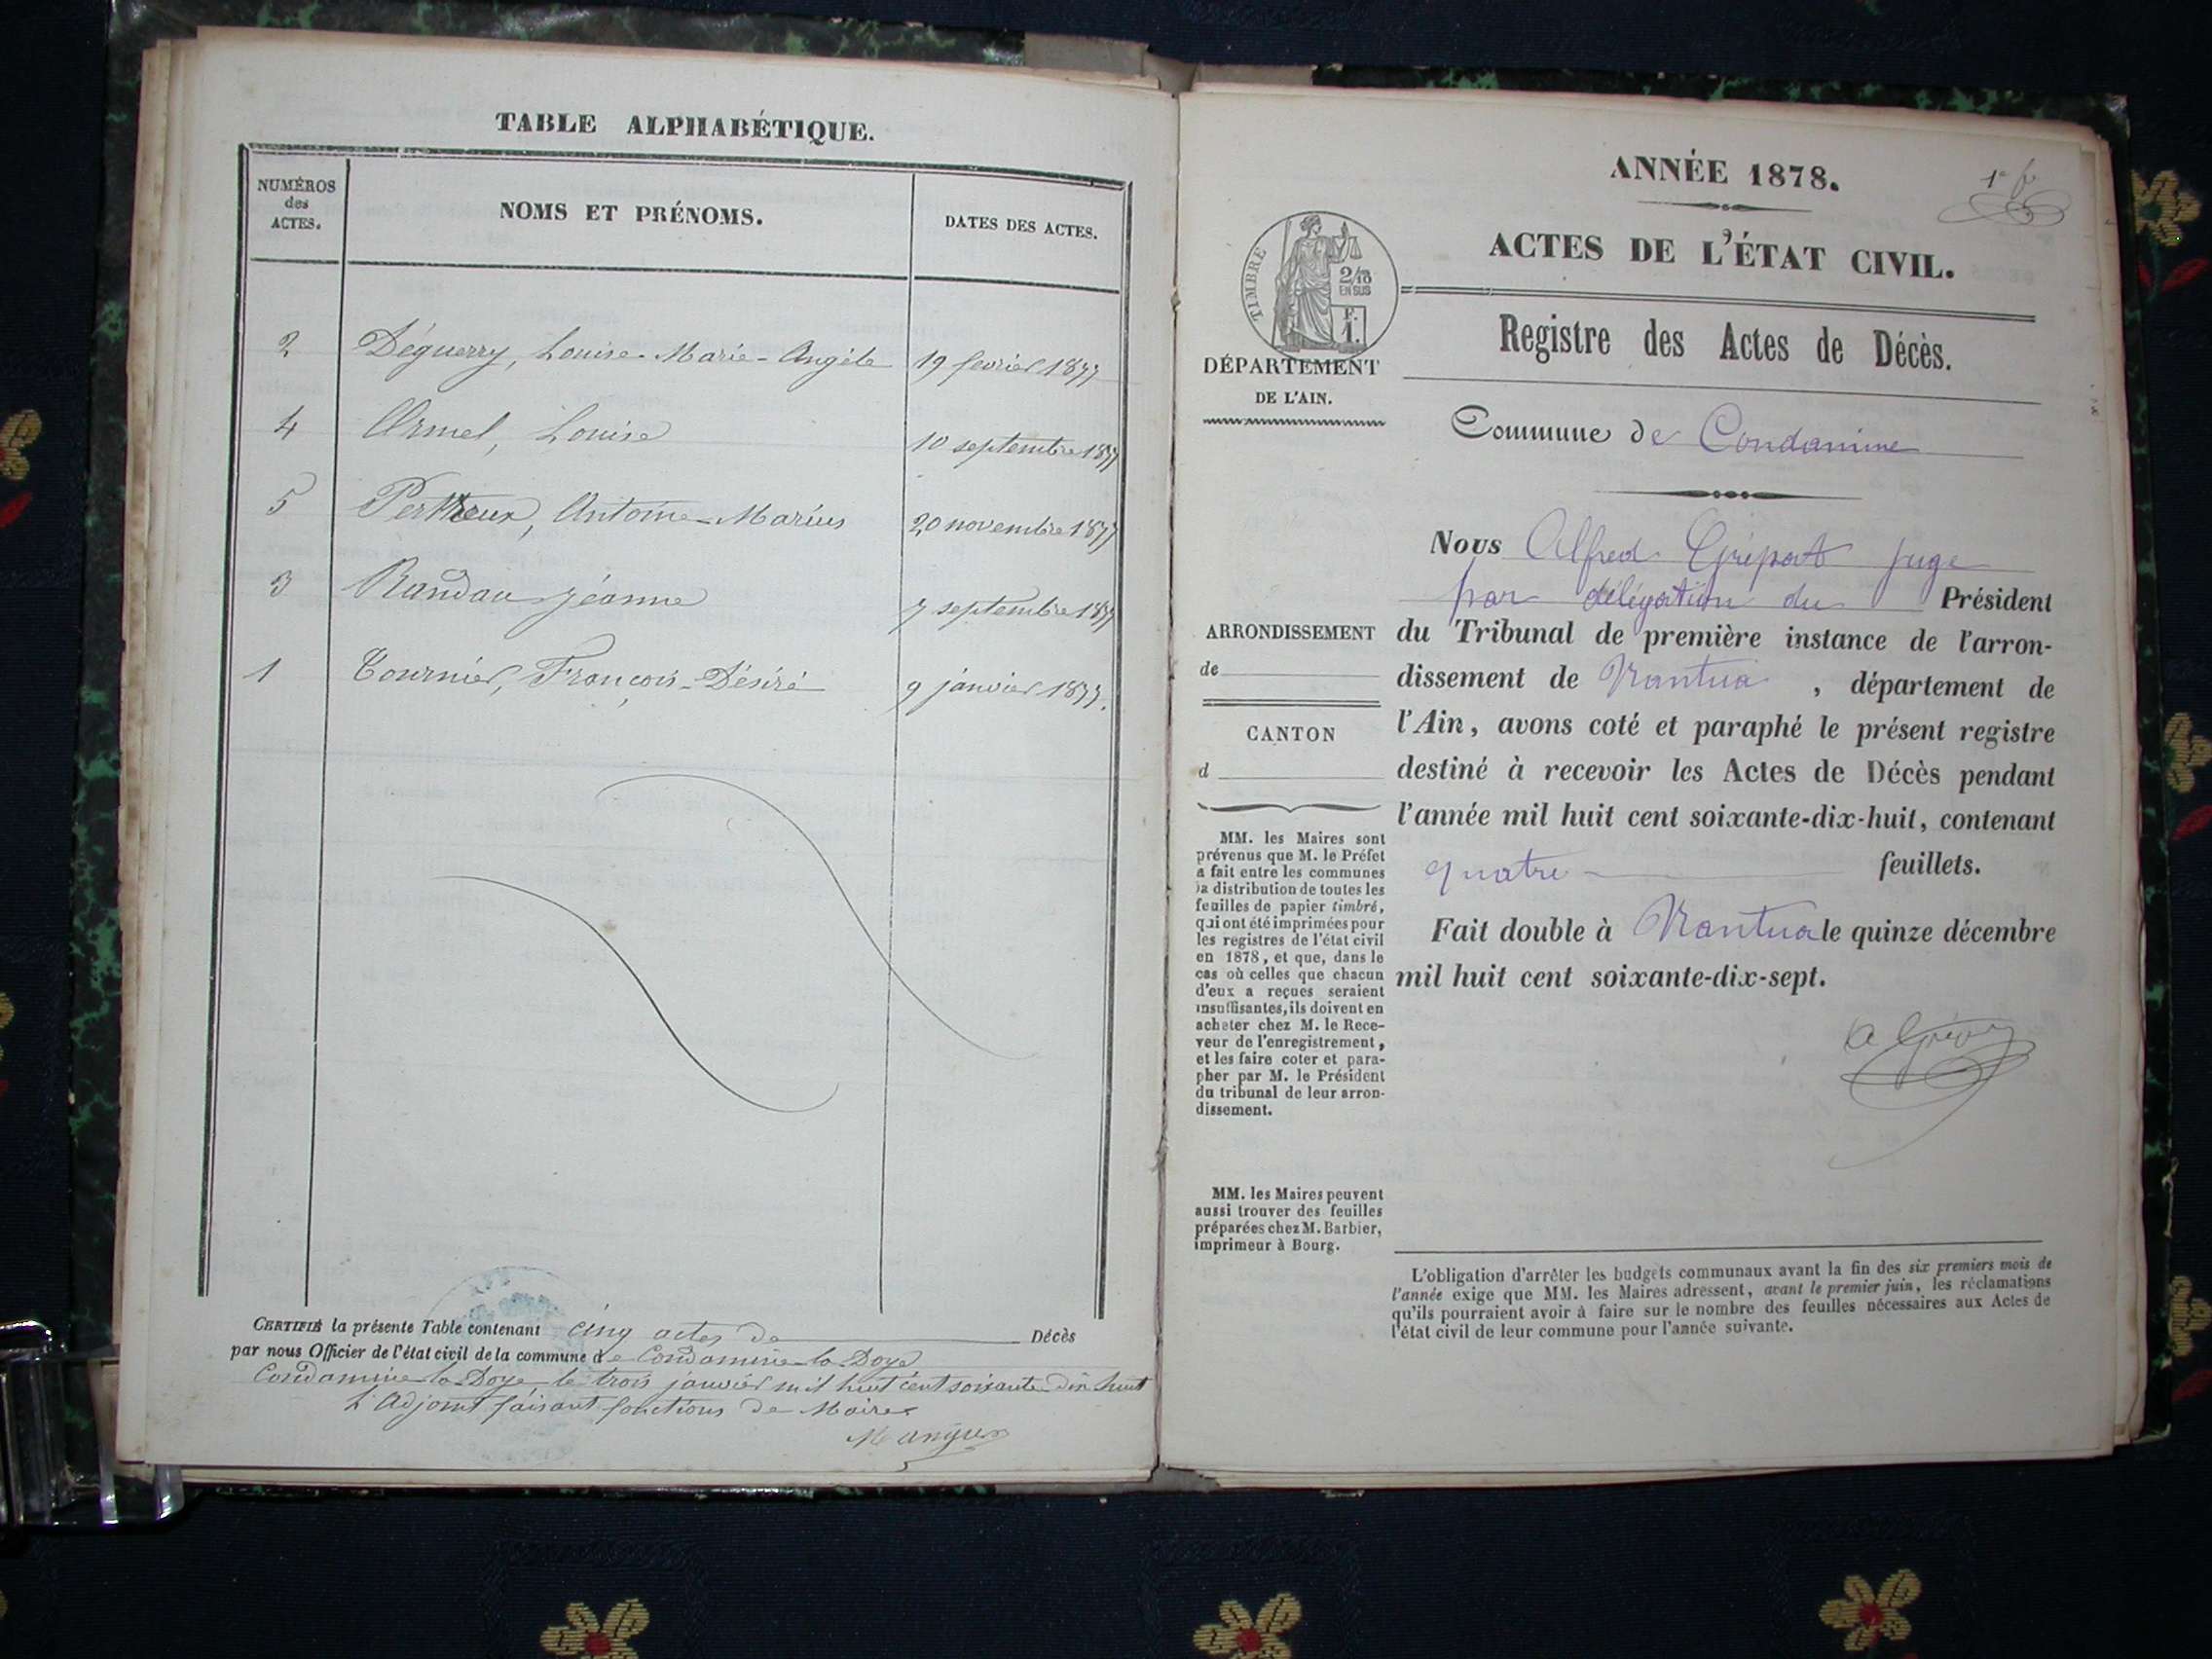 TABLE ALPHABÉTIQUE.
NUMÉROS
des
ACTES.
NOMS ET PRÉNOMS.
DATES DES ACTES.
2 Déguerry, Louise-Marie-Angèle 19 fevrier 1877
4 Armel, Louise 10 septembre 1877
5 Perthreux, Antoine-Marius 20 novembre 1877
3 Randau Jéanne 7 septembre 1877
1 Tournier, François-Désiré 9 janvier 1877.
CERTIFIÉ la présente Table contenant cinq actes de Décès
par nous Officier de l'état civil de la commune de Condamine la Doye
Condamine la Doye le trois janvier mil huit cent soixante dix huit
L'Adjoint faisant fonctions de Maire
ANNÉE 1878.
ACTES DE L'ÉTAT CIVIL.
TIMBRE
2/10
EN SUS
F.
1.
DÉPARTEMENT
DE L'AIN.
Registre des Actes de Décès.
Commune de Condamine
Nous Alfred juge
par délégation du Président
du Tribunal de première instance de l'arron-
dissement de Nantua, département de
l'Ain, avons coté et paraphé le présent registre
destiné à recevoir les Actes de Décès pendant
l'année mil huit cent soixante-dix-huit, contenant
quatre feuillets.
Fait double à Nantua le quinze décembre
mil huit cent soixante-dix-sept.
ARRONDISSEMENT
de
CANTON
d
MM. les Maires sont
prévenus que M. le Préfet
a fait entre les communes
la distribution de toutes les
feuilles de papier timbré,
qui ont été imprimées pour
les registres de l'état civil
en 1878, et que, dans le
cas où celles que chacun
d'eux a reçues seraient
insuffisantes, ils doivent en
acheter chez M. le Rece-
veur de l'enregistrement,
et les faire coter et para-
pher par M. le Président
du tribunal de leur arron-
dissement.
MM. les Maires peuvent
aussi trouver des feuilles
préparées chez M. Barbier,
imprimeur à Bourg.
L'obligation d'arrêter les budgets communaux avant la fin des six premiers mois de
l'année exige que MM. les Maires adressent, avant le premier juin, les réclamations
qu'ils pourraient avoir à faire sur le nombre des feuilles nécessaires aux Actes de
l'état civil de leur commune pour l'année suivante.